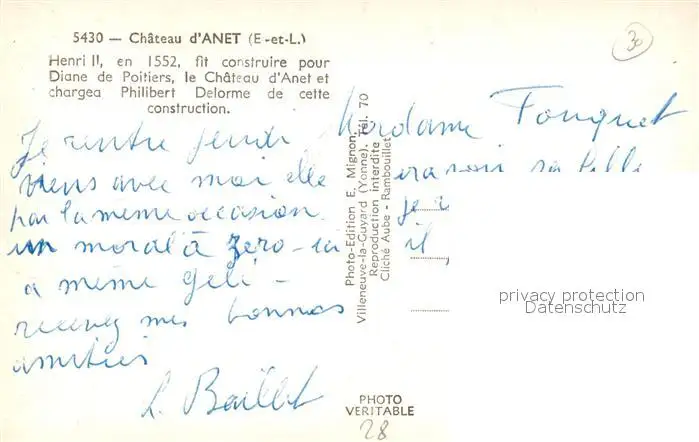 5430 — Château d'ANET (E-et-L.)
Henri II, en 1552, fit construire pour
Diane de Poitiers, le Château d'Anet et
chargea Philibert Delorme de cette
construction.
30
Je rentre jeudi, Madame Fouquet
viens avec moi elle ira voir sa fille
par la même occasion. je
un moral à zero - ici il
a même gelé -
recevez mes bonnes
amitiés
L. Baillet
Photo-Edition E. Mignon,
Villeneuve-la-Guyard (Yonne). Tél. 70
Reproduction interdite
Cliché Aube - Rambouillet
privacy protection
Datenschutz
PHOTO
VERITABLE
28